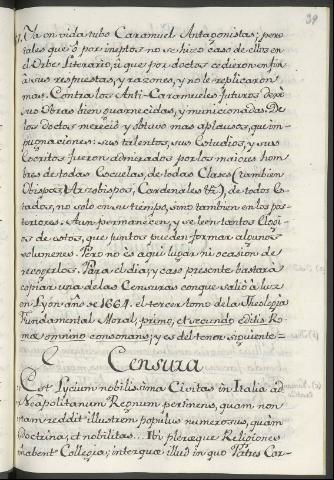 39
Ya en vida tubo Caramuel Antagonistas; pero
tales que ò por ineptos no se hizo caso de ellos en
el Orbe Literario, ù que por doctos cedieron en fin
à sus respuestas, y razones, y no le replicaron
mas. Contra los Anti-Caramueles futuros dexò
sus Obras bien guarnecidas, y municionadas. De
los doctos mereciò y obtuvo mas aplausos, que im-
pugnaciones: sus talentos, sus Estudios, y sus
Escritos fueron admirados por los maiores hom-
bres de todas Escuelas, de todas Clases (tambien
Obispos, Arzobispos, Cardenales &c), de todos Es-
tados, no solo en su tiempo, sino tambien en los pos-
teriores. Aun permanecen, y se leen tantos Elogi-
os de estos, que juntos pueden formar algunos
volumenes. Pero no es aqui lugar ni ocasion de
recogerlos. Para el dia, y caso presente bastarà
copiar una de las Censuras conque saliò à luz
en Lyon año de 1664. el tercer tomo de la Theologia
Fundamental Moral, primo, et secundo editis Ro-
mæ omnino consonans; y es del tenor siguiente=
Censura
Est Lycium nobilissima Civitas in Italia ad
Neapolitanum Regnum pertinens, quam non
tam reddit illustrem populus numerosus, quàm
doctrina, et nobilitas... Ibi pleræque Religiones
habent Collegia; interquæ illud in quo Patres Car-